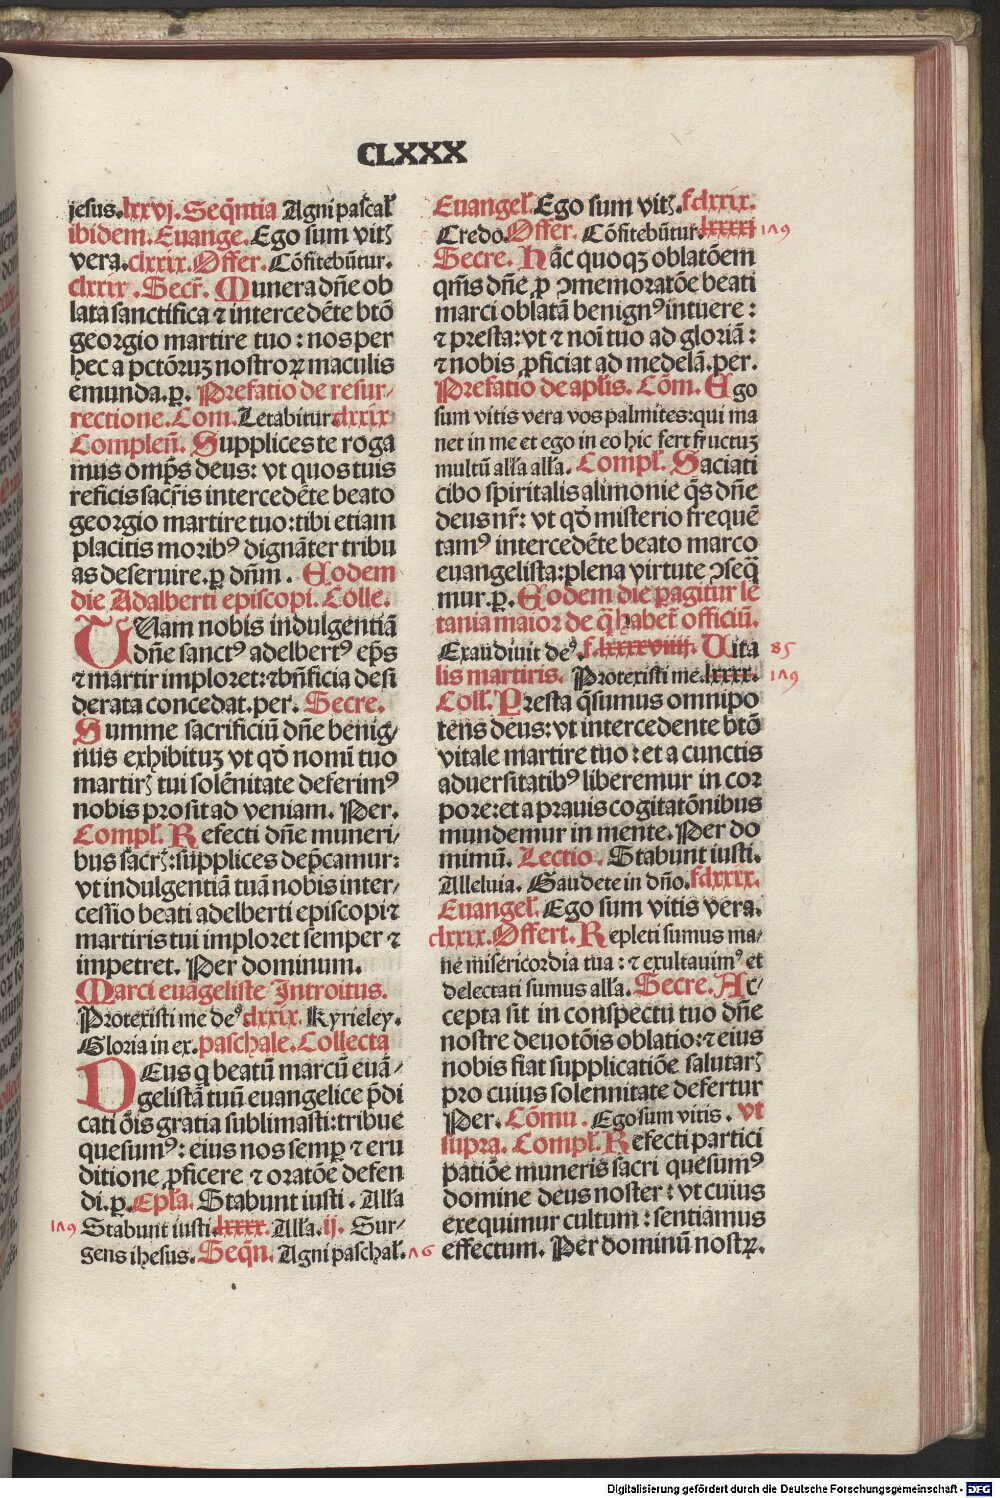 CLXXX
jesus. lxxvj. Seq̃ntia Agni pascal̃
ibidem. Euange. Ego sum vitꝭ
vera. clxxix. Offer. Cõfitebũtur.
clxxix. Secr̃. Munera dñe ob
lata sanctifica ⁊ intercedẽte btõ
georgio martire tuo: nos per
hec a pctõruʒ nostroꝝ maculis
emunda. ꝑ. Prefatio de resur⸗
rectione. Com. Letabitur. clxxix
Compleñ. Supplices te roga
mus omp̃s deus: vt quos tuis
reficis sacr̃is intercedẽte beato
georgio martire tuo: tibi etiam
placitis moribꝰ dignãter tribu
as deseruire. ꝑ dñm. Eodem
die Adalberti episcopi. Colle.
TUam nobis indulgentiã
dñe sanctꝰ adelbertꝰ ep̃s
⁊ martir imploret: ⁊ bñficia desi
derata concedat. per. Secre.
Summe sacrificiũ dñe benig⸗
nus exhibituʒ vt qđ nomĩ tuo
martirꝭ tui solẽnitate deferimꝰ
nobis prosit ad veniam. Per.
Compl̃. Refecti dñe muneri⸗
bus sacrꝭ: supplices dep̃camur:
vt indulgentiã tuã nobis inter⸗
cessio beati adelberti episcopi ⁊
martiris tui imploret semper ⁊
impetret. Per dominum.
Marci euãgeliste Introitus.
Protexisti me deꝰ clxxix. Kyrieley.
Gloria in ex. paschale. Collecta
DEus q beatũ marcũ euã⸗
gelistã tuũ euangelice p̃di
cati õis gratia sublimasti: tribue
quesumꝰ: eius nos semꝑ ⁊ eru
ditione ꝓficere ⁊ oratõe defen
di. ꝑ. Epl̃a. Stabunt iusti. Alla
179 Stabunt iusti. lxxxx. Alla. ij. Sur⸗
gens ihesus. Seq̃n. Agni paschal̃. 176
Euangel̃. Ego sum vitꝭ. f. clxxix.
Credo. Offer. Cõfitebũtur. lxxxxj 179
Secre. Hãc quoqʒ oblatõem
qm̃s dñe ꝑ ꝯmemoratõe beati
marci oblatã benignꝰ intuere:
⁊ presta: vt ⁊ noĩ tuo ad gloriã:
⁊ nobis ꝓficiat ad medelã. per.
Prefatio de apl̃is. Cõm. Ego
sum vitis vera vos palmites: qui ma
net in me et ego in eo hic fert fructuʒ
multũ alla alla. Compl̃. Saciati
cibo spiritalis alimonie q̃s dñe
deus nr̃: vt qđ misterio frequẽ
tamꝰ intercedẽte beato marco
euangelista: plena virtute ꝯseq̃
mur. ꝑ. Eodem die ꝑagitur le
tania maior de q̃ habet̃ officiũ.
Exaudiuit deꝰ. f. lxxxxviiij. Uita 85
lis martiris. Protexisti me. lxxxx. 179
Coll̃. Presta q̃sumus omnipo
tens deus: vt intercedente btõ
vitale martire tuo: et a cunctis
aduersitatibꝰ liberemur in cor
pore: et a prauis cogitatõnibus
mundemur in mente. Per do
minũ. Lectio. Stabunt iusti.
Alleluia. Gaudete in dño. f. clxxix.
Euangel̃. Ego sum vitis vera.
clxxx. Offert. Repleti sumus ma⸗
ne misericordia tua: ⁊ exultauimꝰ et
delectati sumus alla. Secre. Ac⸗
cepta sit in conspectu tuo dñe
nostre deuotõis oblatio: ⁊ eius
nobis fiat supplicatiõe salutarꝭ
pro cuius solennitate defertur
Per. Cõmu. Ego sum vitis. vt
supra. Compl̃. Refecti partici
patiõe muneris sacri quesumꝰ
domine deus noster: vt cuius
exequimur cultum: sentiamus
effectum. Per dominũ nostꝝ.
Digitalisierung gefördert durch die Deutsche Forschungsgemeinschaft - DFG